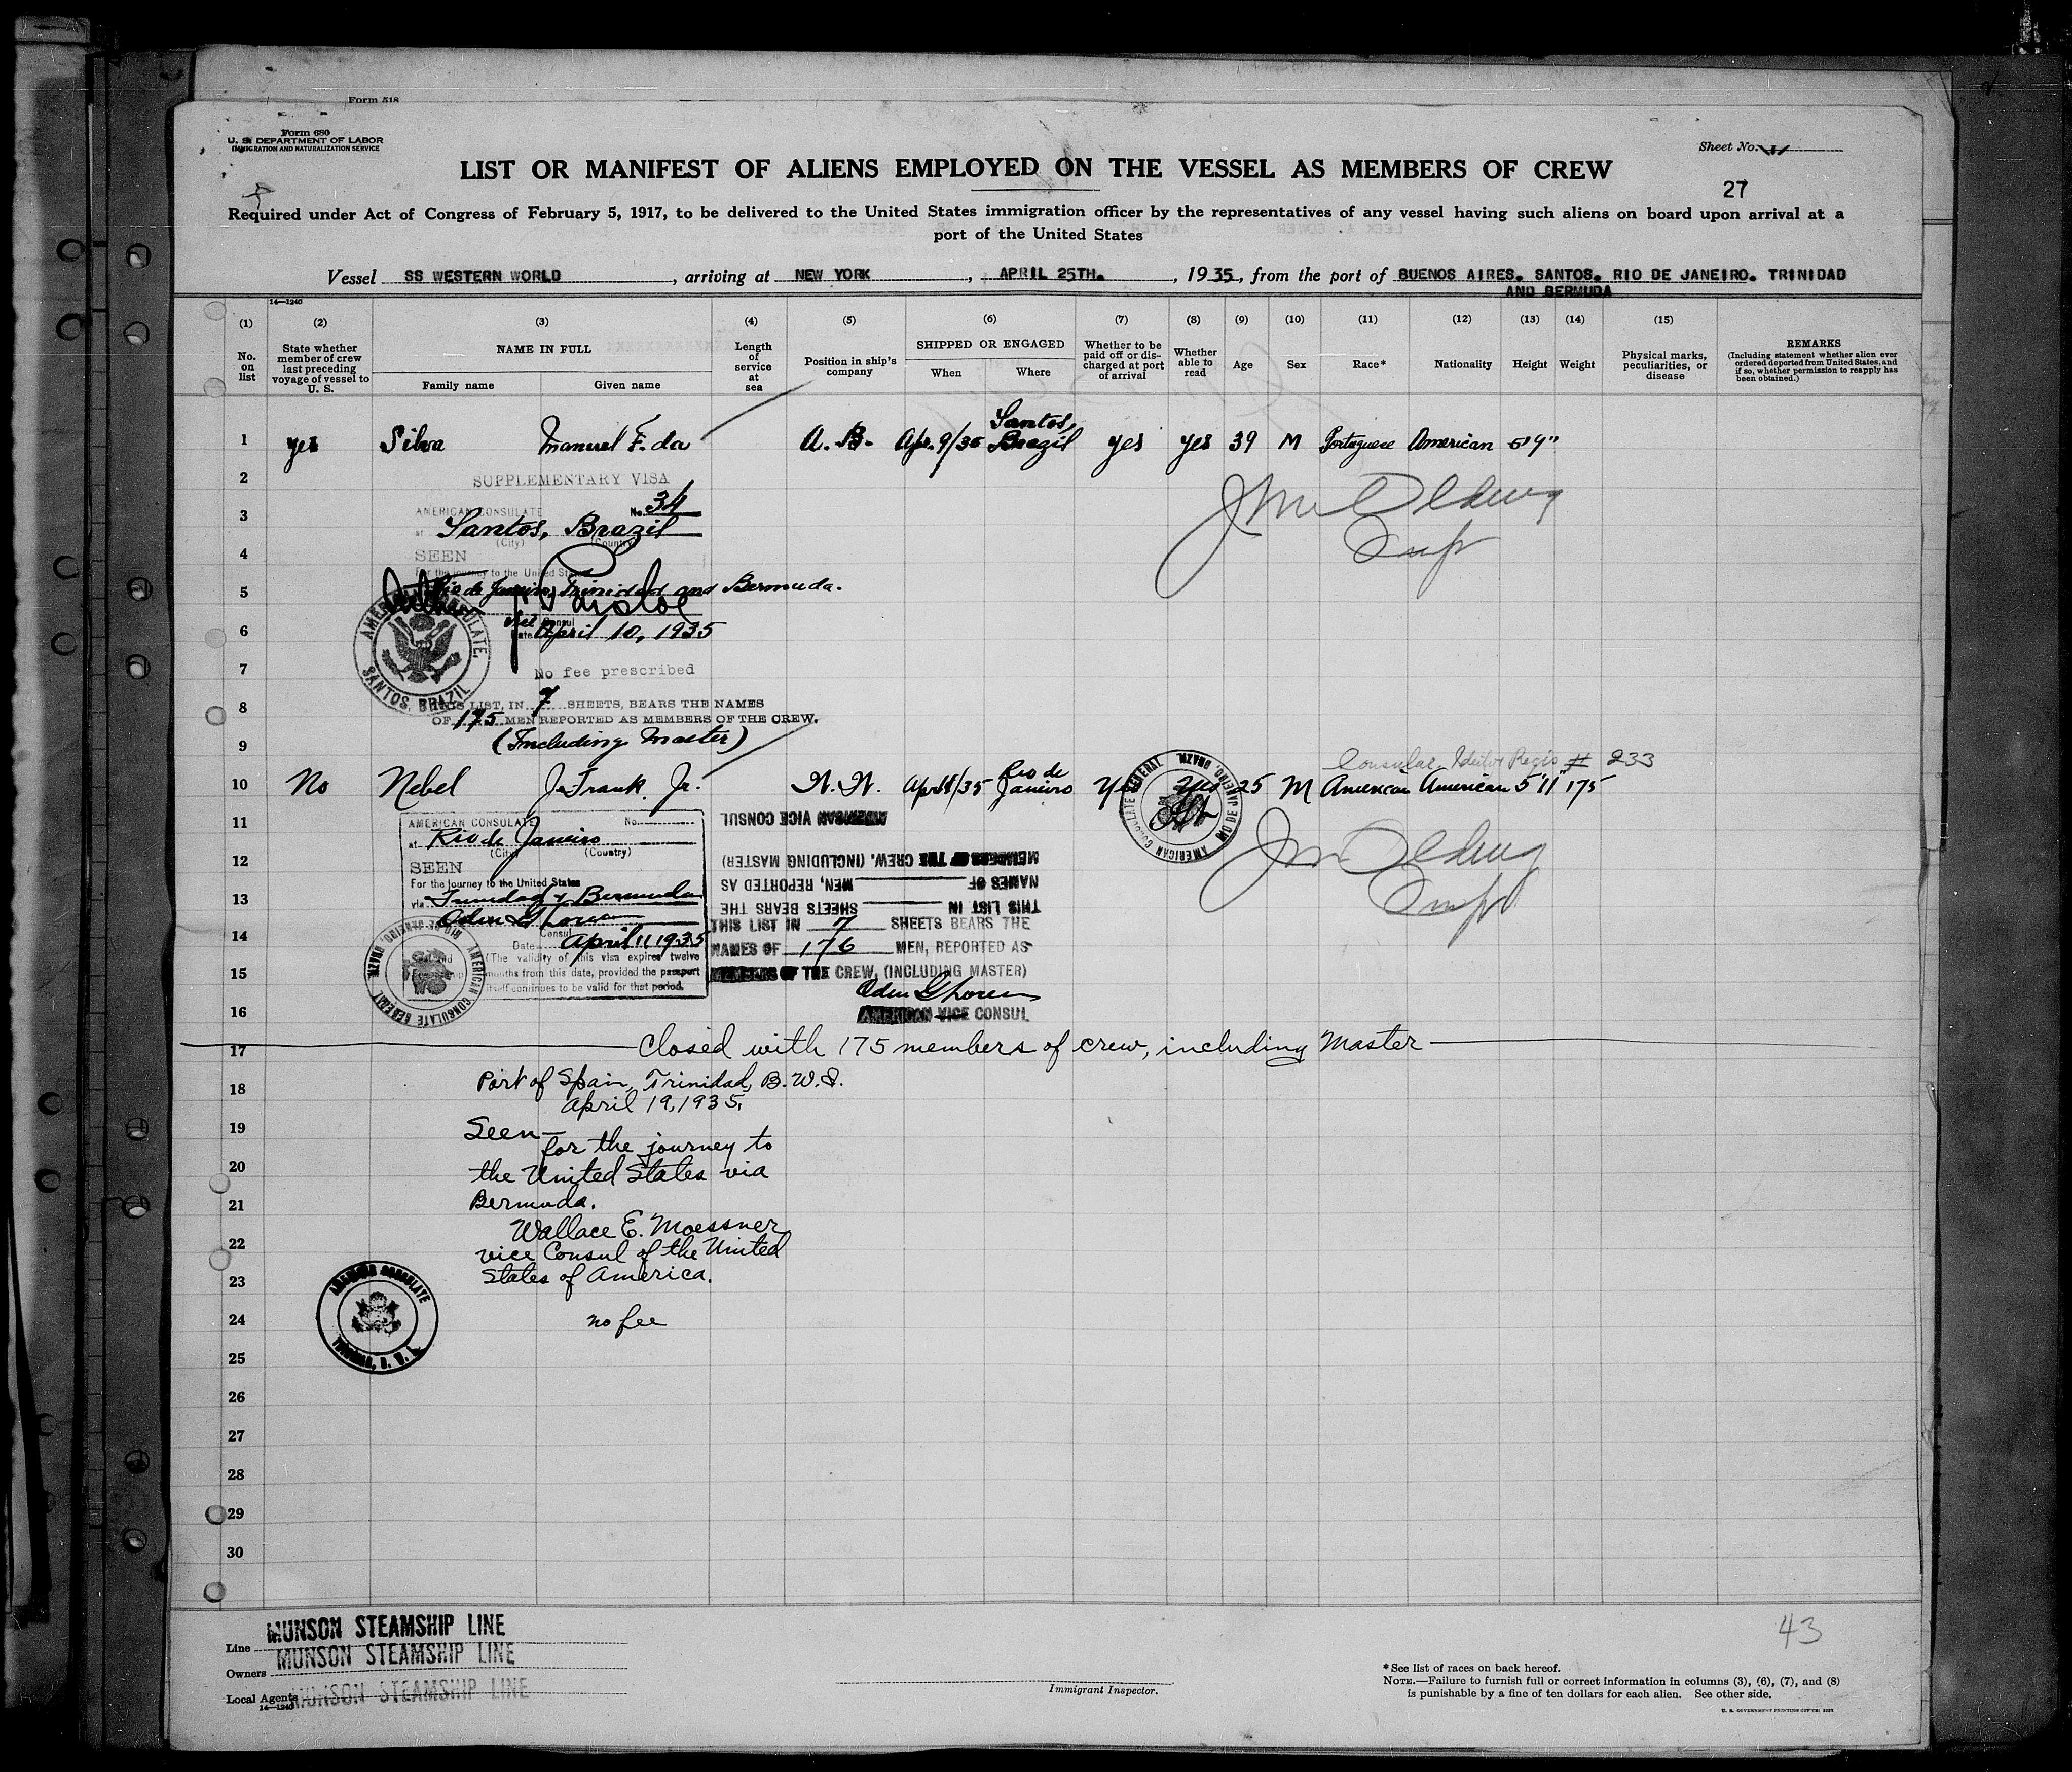 Form 518
Form 680
U. S. DEPARTMENT OF LABOR
IMMIGRATION AND NATURALIZATION SERVICE
Sheet No.
LIST OR MANIFEST OF ALIENS EMPLOYED ON THE VESSEL AS MEMBERS OF CREW
27
Required under Act of Congress of February 5, 1917, to be delivered to the United States immigration officer by the representatives of any vessel having such aliens on board upon arrival at a
port of the United States
Vessel SS WESTERN WORLD, arriving at NEW YORK, APRIL 25TH., 1935, from the port of BUENOS AIRES. SANTOS. RIO DE JANEIRO. TRINIDAD
AND BERMUDA
14—1240
(1) (2) (3) (4) (5) (6) (7) (8) (9) (10) (11) (12) (13) (14) (15)
No. on list
State whether member of crew last preceding voyage of vessel to U. S.
NAME IN FULL
Family name
Given name
Length of service at sea
Position in ship's company
SHIPPED OR ENGAGED
When
Where
Whether to be paid off or discharged at port of arrival
Whether able to read
Age
Sex
Race*
Nationality
Height
Weight
Physical marks, peculiarities, or disease
REMARKS
(Including statement whether alien ever ordered deported from United States, and if so, whether permission to reapply has been obtained.)
1 yes Silva Manuel F. da A. B. Apr. 9/35 Santos, Brazil yes yes 39 M Portuguese American 5'9"
2
SUPPLEMENTARY VISA
3
AMERICAN CONSULATE No. 34
at Santos, Brazil
(City) (Country)
4
SEEN
For the journey to the United States
5
Rio de Janeiro, Trinidad and Bermuda.
Vice Consul
6
Date April 10, 1935
AMERICAN CONSULATE, SANTOS, BRAZIL
7
No fee prescribed
8
THIS LIST, IN 7 SHEETS, BEARS THE NAMES
OF 175 MEN REPORTED AS MEMBERS OF THE CREW.
9
(Including Master)
Consular Regis # 233
10 No Nebel J. Frank, Jr. Apr 11/35 Rio de Janeiro yes yes 25 M American American 5'11" 175
AMERICAN CONSULATE GENERAL RIO DE JANEIRO, BRAZIL
11
AMERICAN CONSULATE No.
at Rio de Janeiro
(City) (Country)
AMERICAN VICE CONSUL
12
SEEN
MEMBERS OF THE CREW, (INCLUDING MASTER)
For the journey to the United States
NAMES OF MEN, REPORTED AS
13
via Trinidad & Bermuda
THIS LIST IN SHEETS BEARS THE
14
Consul
Date April 11 1935
THIS LIST IN 7 SHEETS BEARS THE
NAMES OF 176 MEN, REPORTED AS
15
(The validity of this visa expires twelve
months from this date, provided the passport
itself continues to be valid for that period.
MEMBERS OF THE CREW, (INCLUDING MASTER)
AMERICAN CONSULATE GENERAL RIO DE JANEIRO, BRAZIL
16
AMERICAN VICE CONSUL
17
Closed with 175 members of crew, including Master
18
Port of Spain, Trinidad, B.W.I.
April 19, 1935.
19
Seen—
for the journey to
20
the United States via
21
Bermuda.
22
Wallace E. Moessner
vice Consul of the United
23
States of America.
AMERICAN CONSULATE
TRINIDAD, B. W. I.
24
no fee
25
26
27
28
29
30
43
Line MUNSON STEAMSHIP LINE
Owners MUNSON STEAMSHIP LINE
Local Agents MUNSON STEAMSHIP LINE
14—1240
Immigrant Inspector.
*See list of races on back hereof.
NOTE.—Failure to furnish full or correct information in columns (3), (6), (7), and (8)
is punishable by a fine of ten dollars for each alien. See other side.